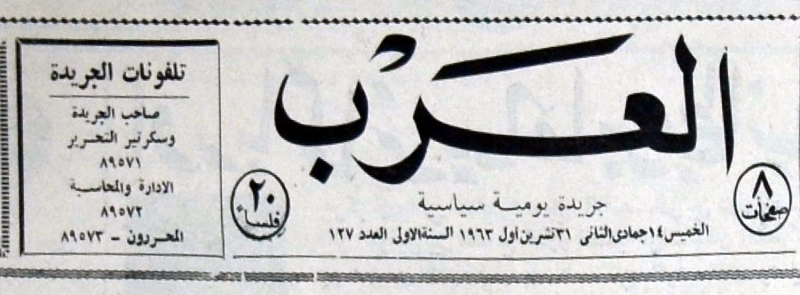 العرب
٨
صفحات
جريدة يومية سياسية
٢٠
فلسا
الخميس ١٤ جمادى الثانى ٣١ تشرين اول ١٩٦٣ السنة الاولى العدد ١٢٧
تلفونات الجريدة
صاحب الجريدة
وسكرتير التحرير
٨٩٥٧١
الادارة والمحاسبة
٨٩٥٧٢
المحررون - ٨٩٥٧٣